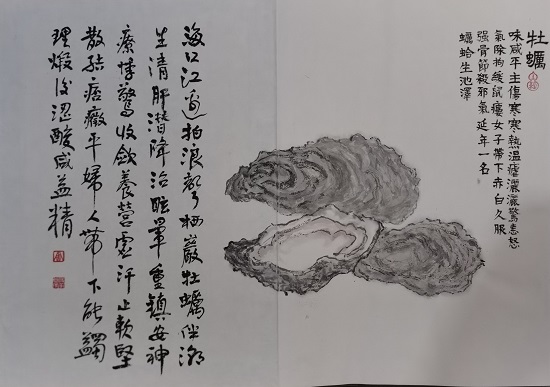 牡蠣
味咸平主傷寒寒熱溫瘧灑灑驚恚怒
氣除拘緩鼠瘻女子帶下赤白久服
強骨節殺邪氣延年一名
蠣蛤生池澤
海口江邊拍浪聲栖巖牡蠣伴潮
生清肝潛降治眩暈重鎮安神
療悸驚收斂養營虛汗止軟堅
散結痞癥平婦人帶下能蠲
理煅後澀酸咸益精